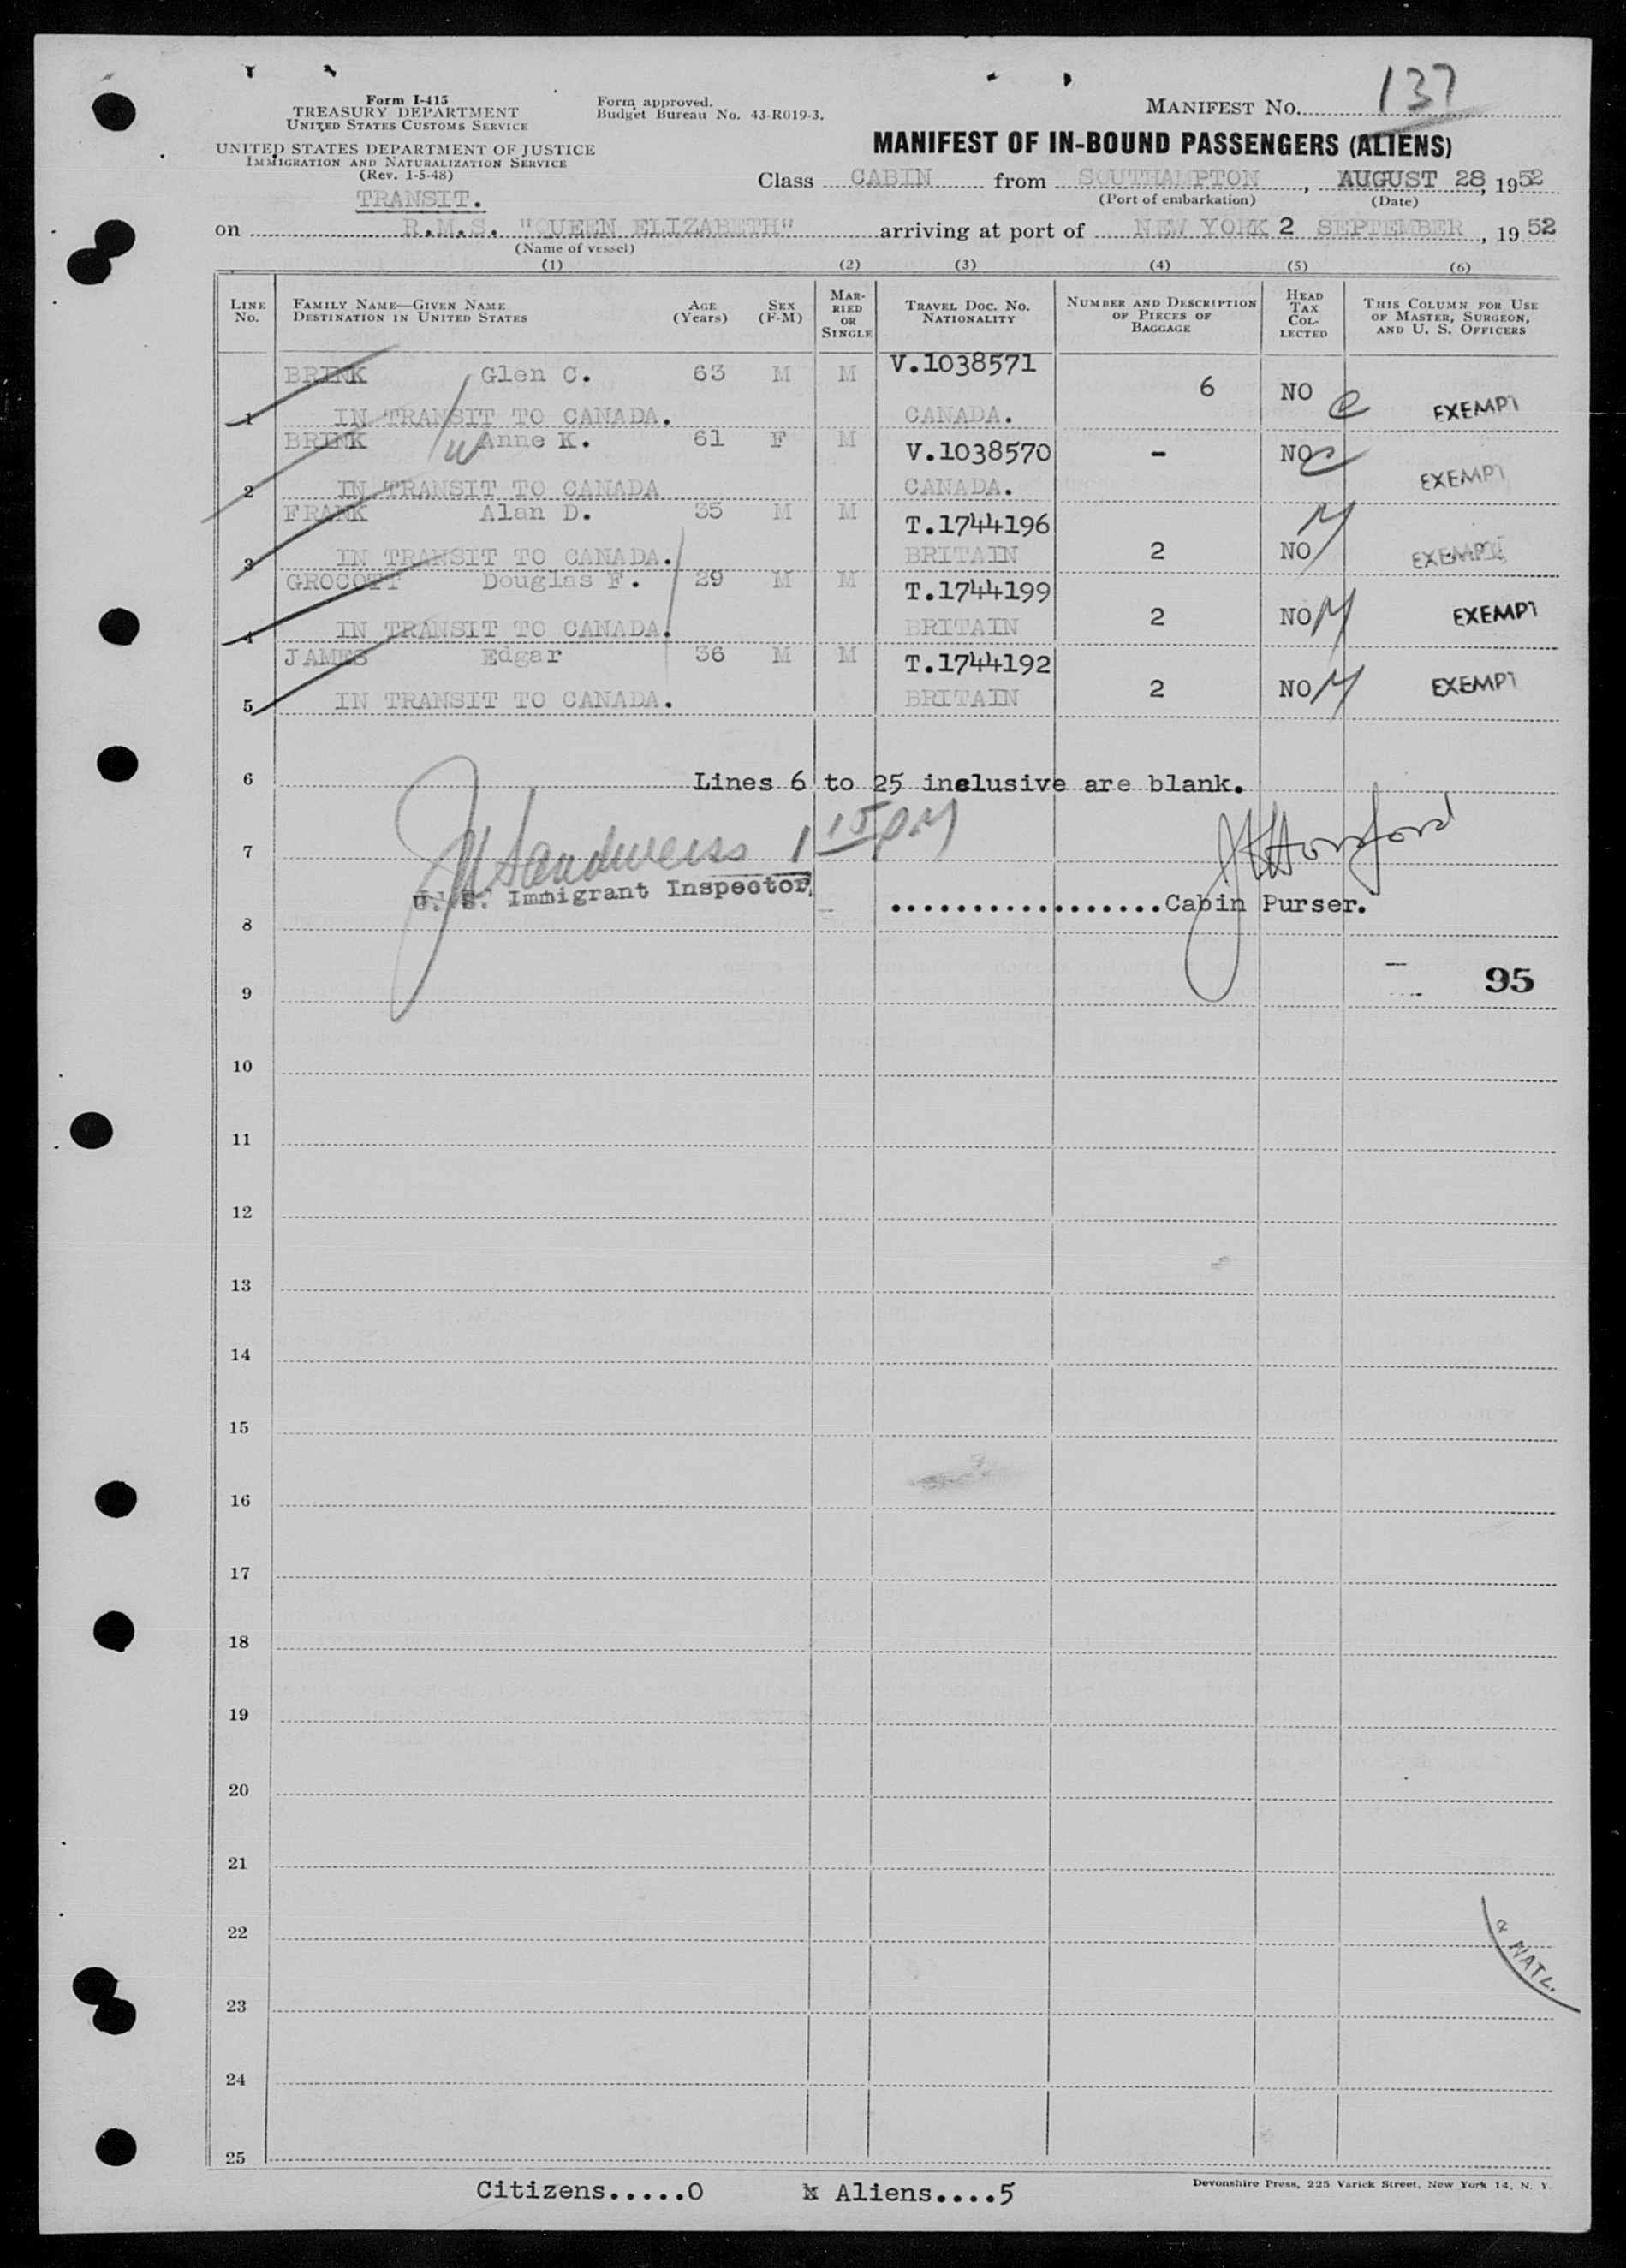 137
Form I-415
TREASURY DEPARTMENT
UNITED STATES CUSTOMS SERVICE
Form approved.
Budget Bureau No. 43-R019-3.
MANIFEST NO.
UNITED STATES DEPARTMENT OF JUSTICE
IMMIGRATION AND NATURALIZATION SERVICE
(Rev. 1-5-48)
MANIFEST OF IN-BOUND PASSENGERS (ALIENS)
TRANSIT.
Class CABIN from SOUTHAMPTON, AUGUST 28, 1952
(Port of embarkation) (Date)
on R.M.S. "QUEEN ELIZABETH" arriving at port of NEW YORK 2 SEPTEMBER, 1952
(Name of vessel)
(1) (2) (3) (4) (5) (6)
LINE No. FAMILY NAME—GIVEN NAME DESTINATION IN UNITED STATES AGE (Years) SEX (F-M) MARRIED OR SINGLE TRAVEL DOC. NO. NATIONALITY NUMBER AND DESCRIPTION OF PIECES OF BAGGAGE HEAD TAX COLLECTED THIS COLUMN FOR USE OF MASTER, SURGEON, AND U. S. OFFICERS
BRINK Glen C. 63 M M V.1038571 6 NO
1 IN TRANSIT TO CANADA. CANADA. EXEMPT
BRINK Anne K. 61 F M V.1038570 - NO
2 IN TRANSIT TO CANADA CANADA. EXEMPT
FRANK Alan D. 35 M M T.1744196
3 IN TRANSIT TO CANADA. BRITAIN 2 NO EXEMPT
GROCOTT Douglas F. 29 M M T.1744199
4 IN TRANSIT TO CANADA. BRITAIN 2 NO EXEMPT
JAMES Edgar 36 M M T.1744192
5 IN TRANSIT TO CANADA. BRITAIN 2 NO EXEMPT
6 Lines 6 to 25 inclusive are blank.
7 Sandweiss 1 15 PM
U. S. Immigrant Inspector, .................Cabin Purser.
8
9 95
10
11
12
13
14
15
16
17
18
19
20
21
22
NATL.
23
24
25
Citizens.....0 Aliens....5
Devonshire Press, 225 Varick Street, New York 14, N. Y.